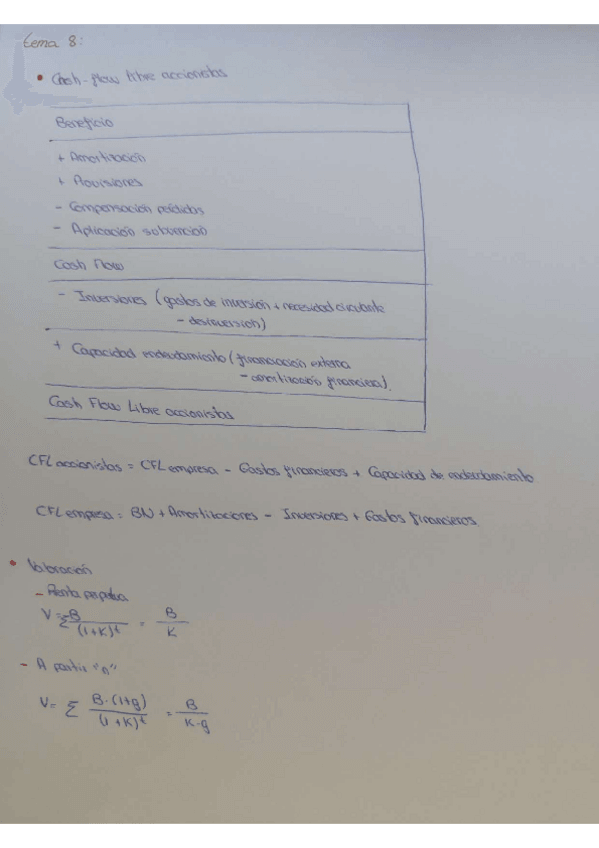 tema 8:
• Cash-flow libre accionistas
Beneficio
+ Amortización
+ Provisiones
- Compensación pérdidas
- Aplicación subvención
Cash Flow
- Inversiones (gastos de inversión + necesidad circulante
- desinversión)
+ Capacidad endeudamiento (financiación externa
- amortización financiera).
Cash Flow Libre accionistas
CFL accionistas = CFL empresa - Gastos financieros + Capacidad de endeudamiento
CFL empresa = BN + Amortizaciones - Inversiones + Gastos financieros
• Valoración
- Renta perpetua
V = Σ B / (1+K)^t = B / K
- A partir "n"
V = Σ B·(1+g) / (1+K)^t = B / K-g